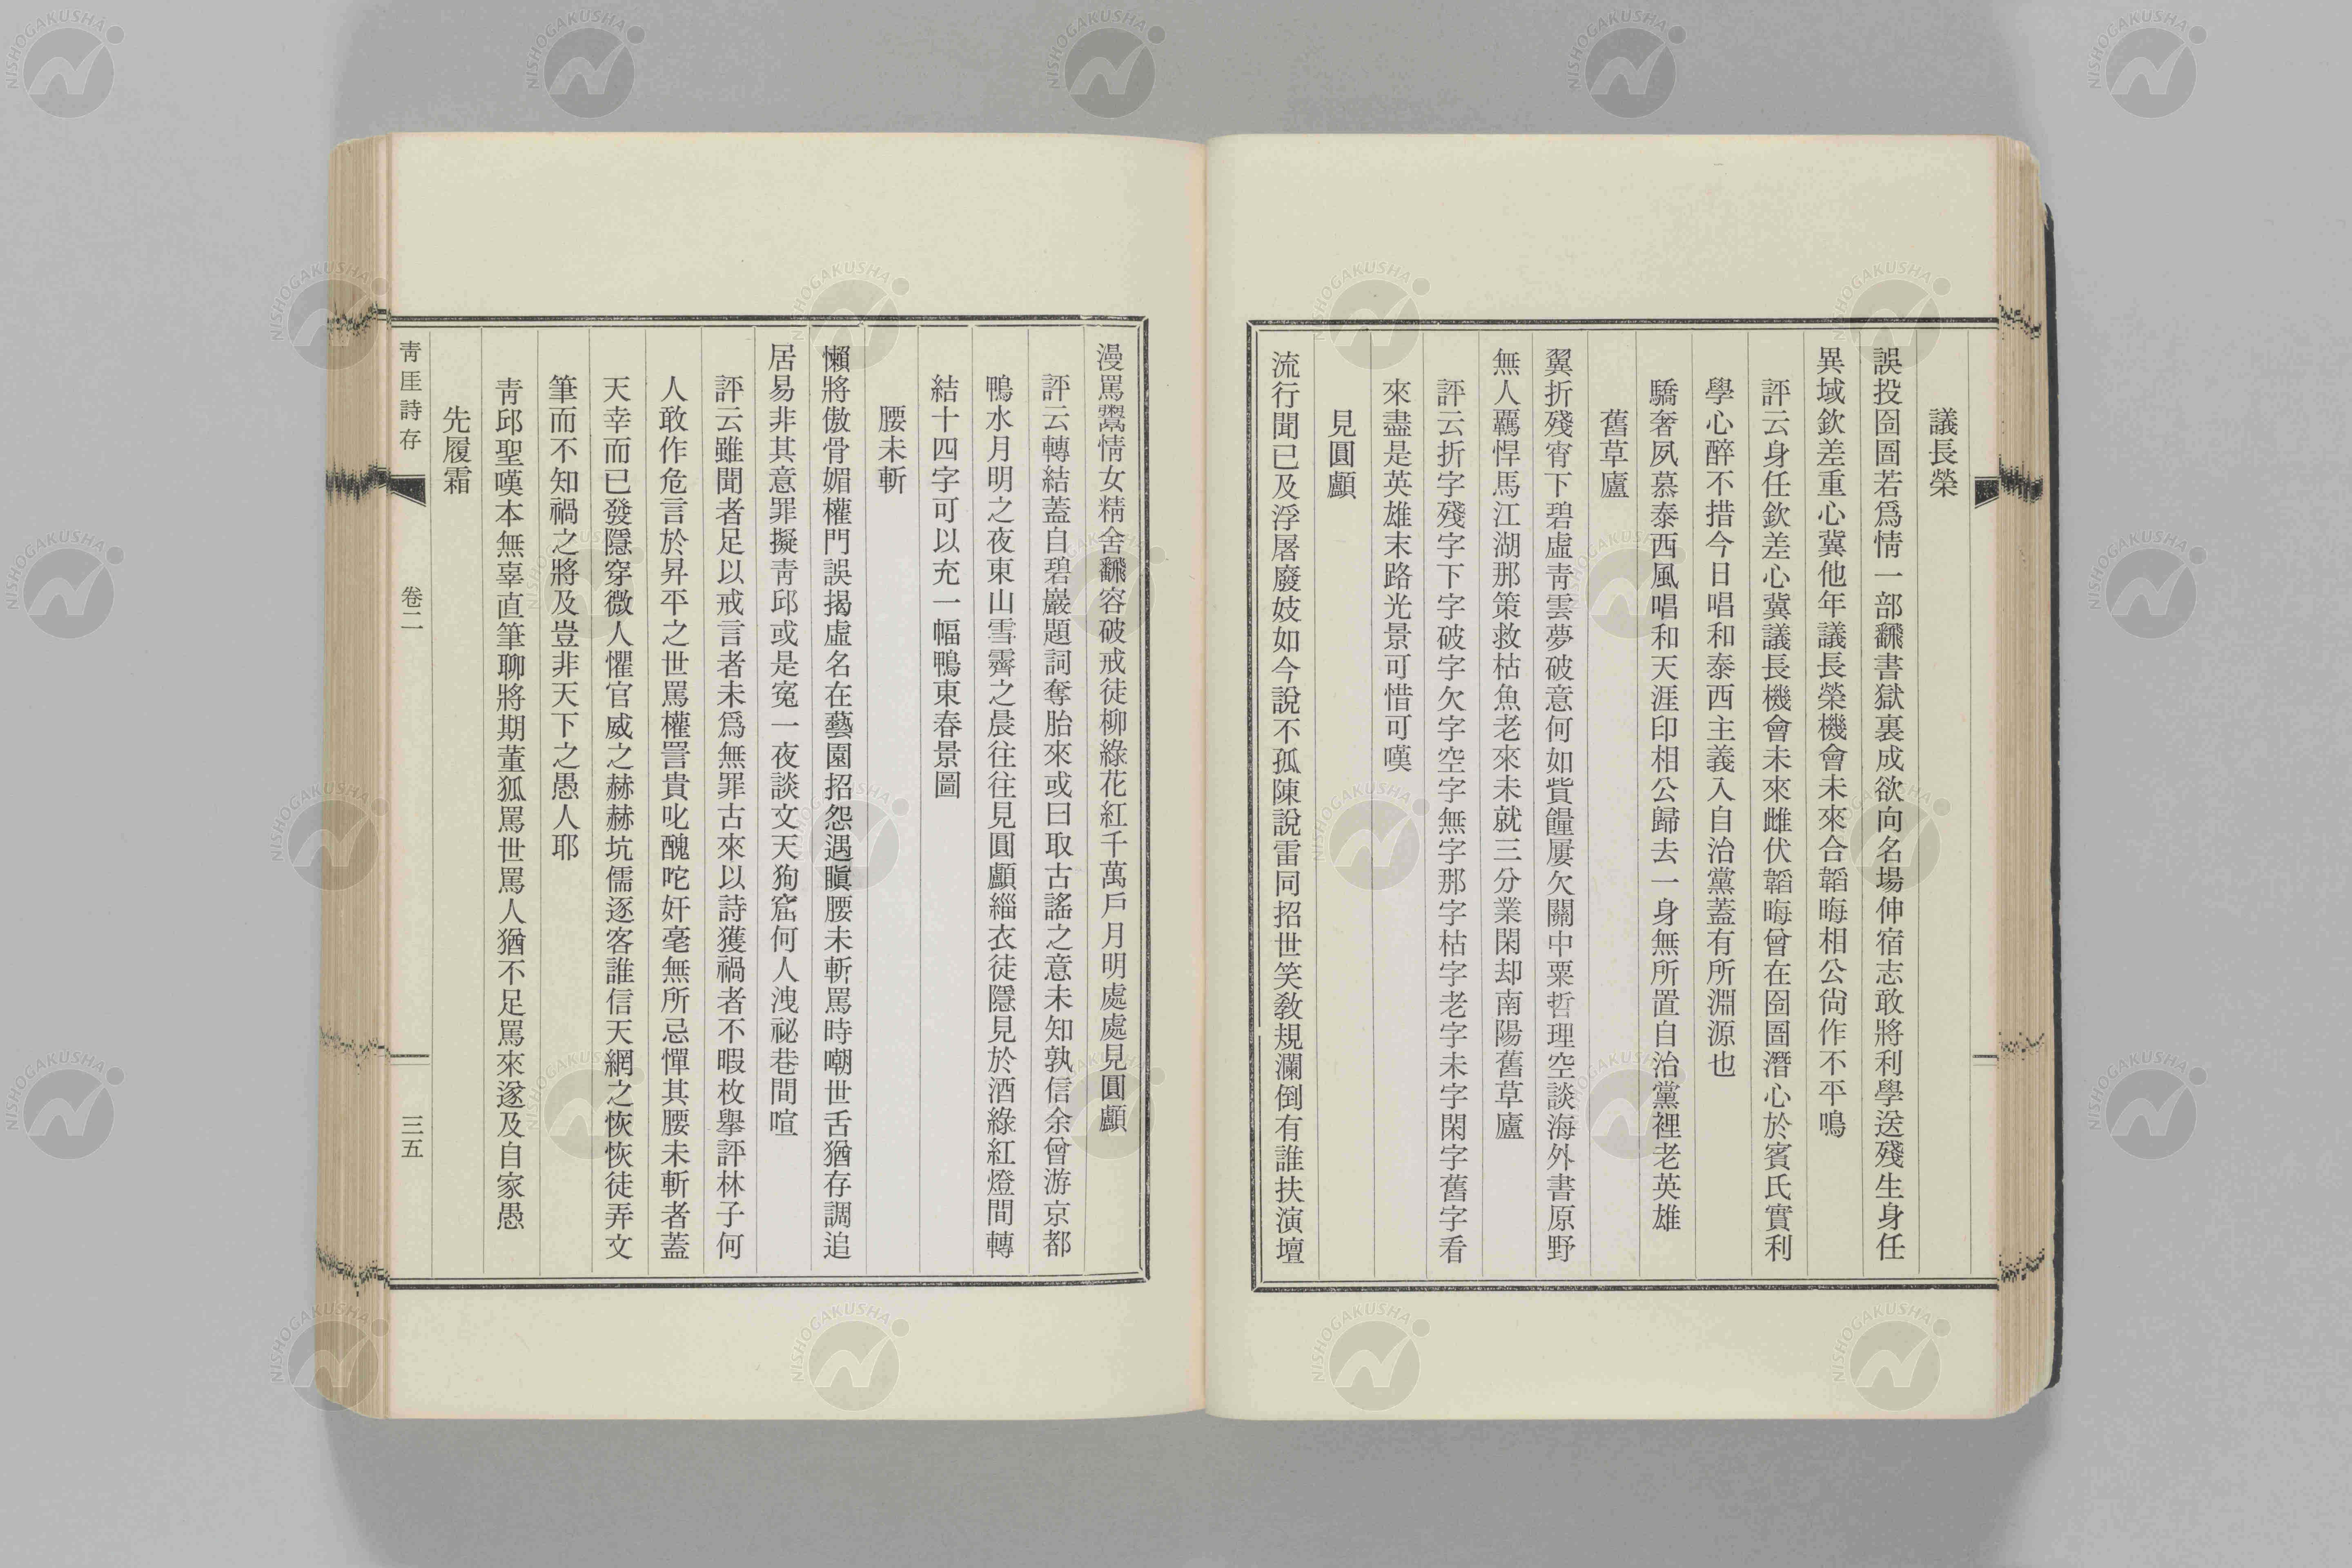 議長榮
誤投囹圄若爲情一部飜書獄裏成欲向名場伸宿志敢將利學送殘生身任
異域欽差重心冀他年議長榮機會未來合韜晦相公尙作不平鳴
評云身任欽差心冀議長機會未來雌伏韜晦曾在囹圄潛心於賓氏實利
學心醉不措今日唱和泰西主義入自治黨蓋有所淵源也
驕奢夙慕泰西風唱和天涯印相公歸去一身無所置自治黨裡老英雄
舊草廬
翼折殘宵下碧虛靑雲夢破意何如貲饘屢欠關中粟哲理空談海外書原野
無人覊悍馬江湖那策救枯魚老來未就三分業閑却南陽舊草廬
評云折字殘字下字破字欠字空字無字那字枯字老字未字閑字舊字看
來盡是英雄末路光景可惜可嘆
見圓顱
流行聞已及浮屠廢妓如今說不孤陳說雷同招世笑教規瀾倒有誰扶演壇
漫罵鬻情女精舍飜容破戒徒柳綠花紅千萬戶月明處處見圓顱
評云轉結蓋自碧巖題詞奪胎來或曰取古謠之意未知孰信余曾游京都
鴨水月明之夜東山雪霽之晨往往見圓顱緇衣徒隱見於酒綠紅燈間轉
結十四字可以充一幅鴨東春景圖
腰未斬
懶將傲骨媚權門誤揭虛名在藝園招怨遇瞋腰未斬罵時嘲世舌猶存調追
居易非其意罪擬靑邱或是寃一夜談文天狗窟何人洩祕巷間喧
評云雖聞者足以戒言者未爲無罪古來以詩獲禍者不暇枚擧評林子何
人敢作危言於昇平之世罵權詈貴叱醜咜奸毫無所忌憚其腰未斬者蓋
天幸而已發隱穿微人懼官威之赫赫坑儒逐客誰信天網之恢恢徒弄文
筆而不知禍之將及豈非天下之愚人耶
靑邱聖嘆本無辜直筆聊將期董狐罵世罵人猶不足罵來遂及自家愚
先履霜
靑厓詩存
卷二
三五
NISHOGAKUSHA